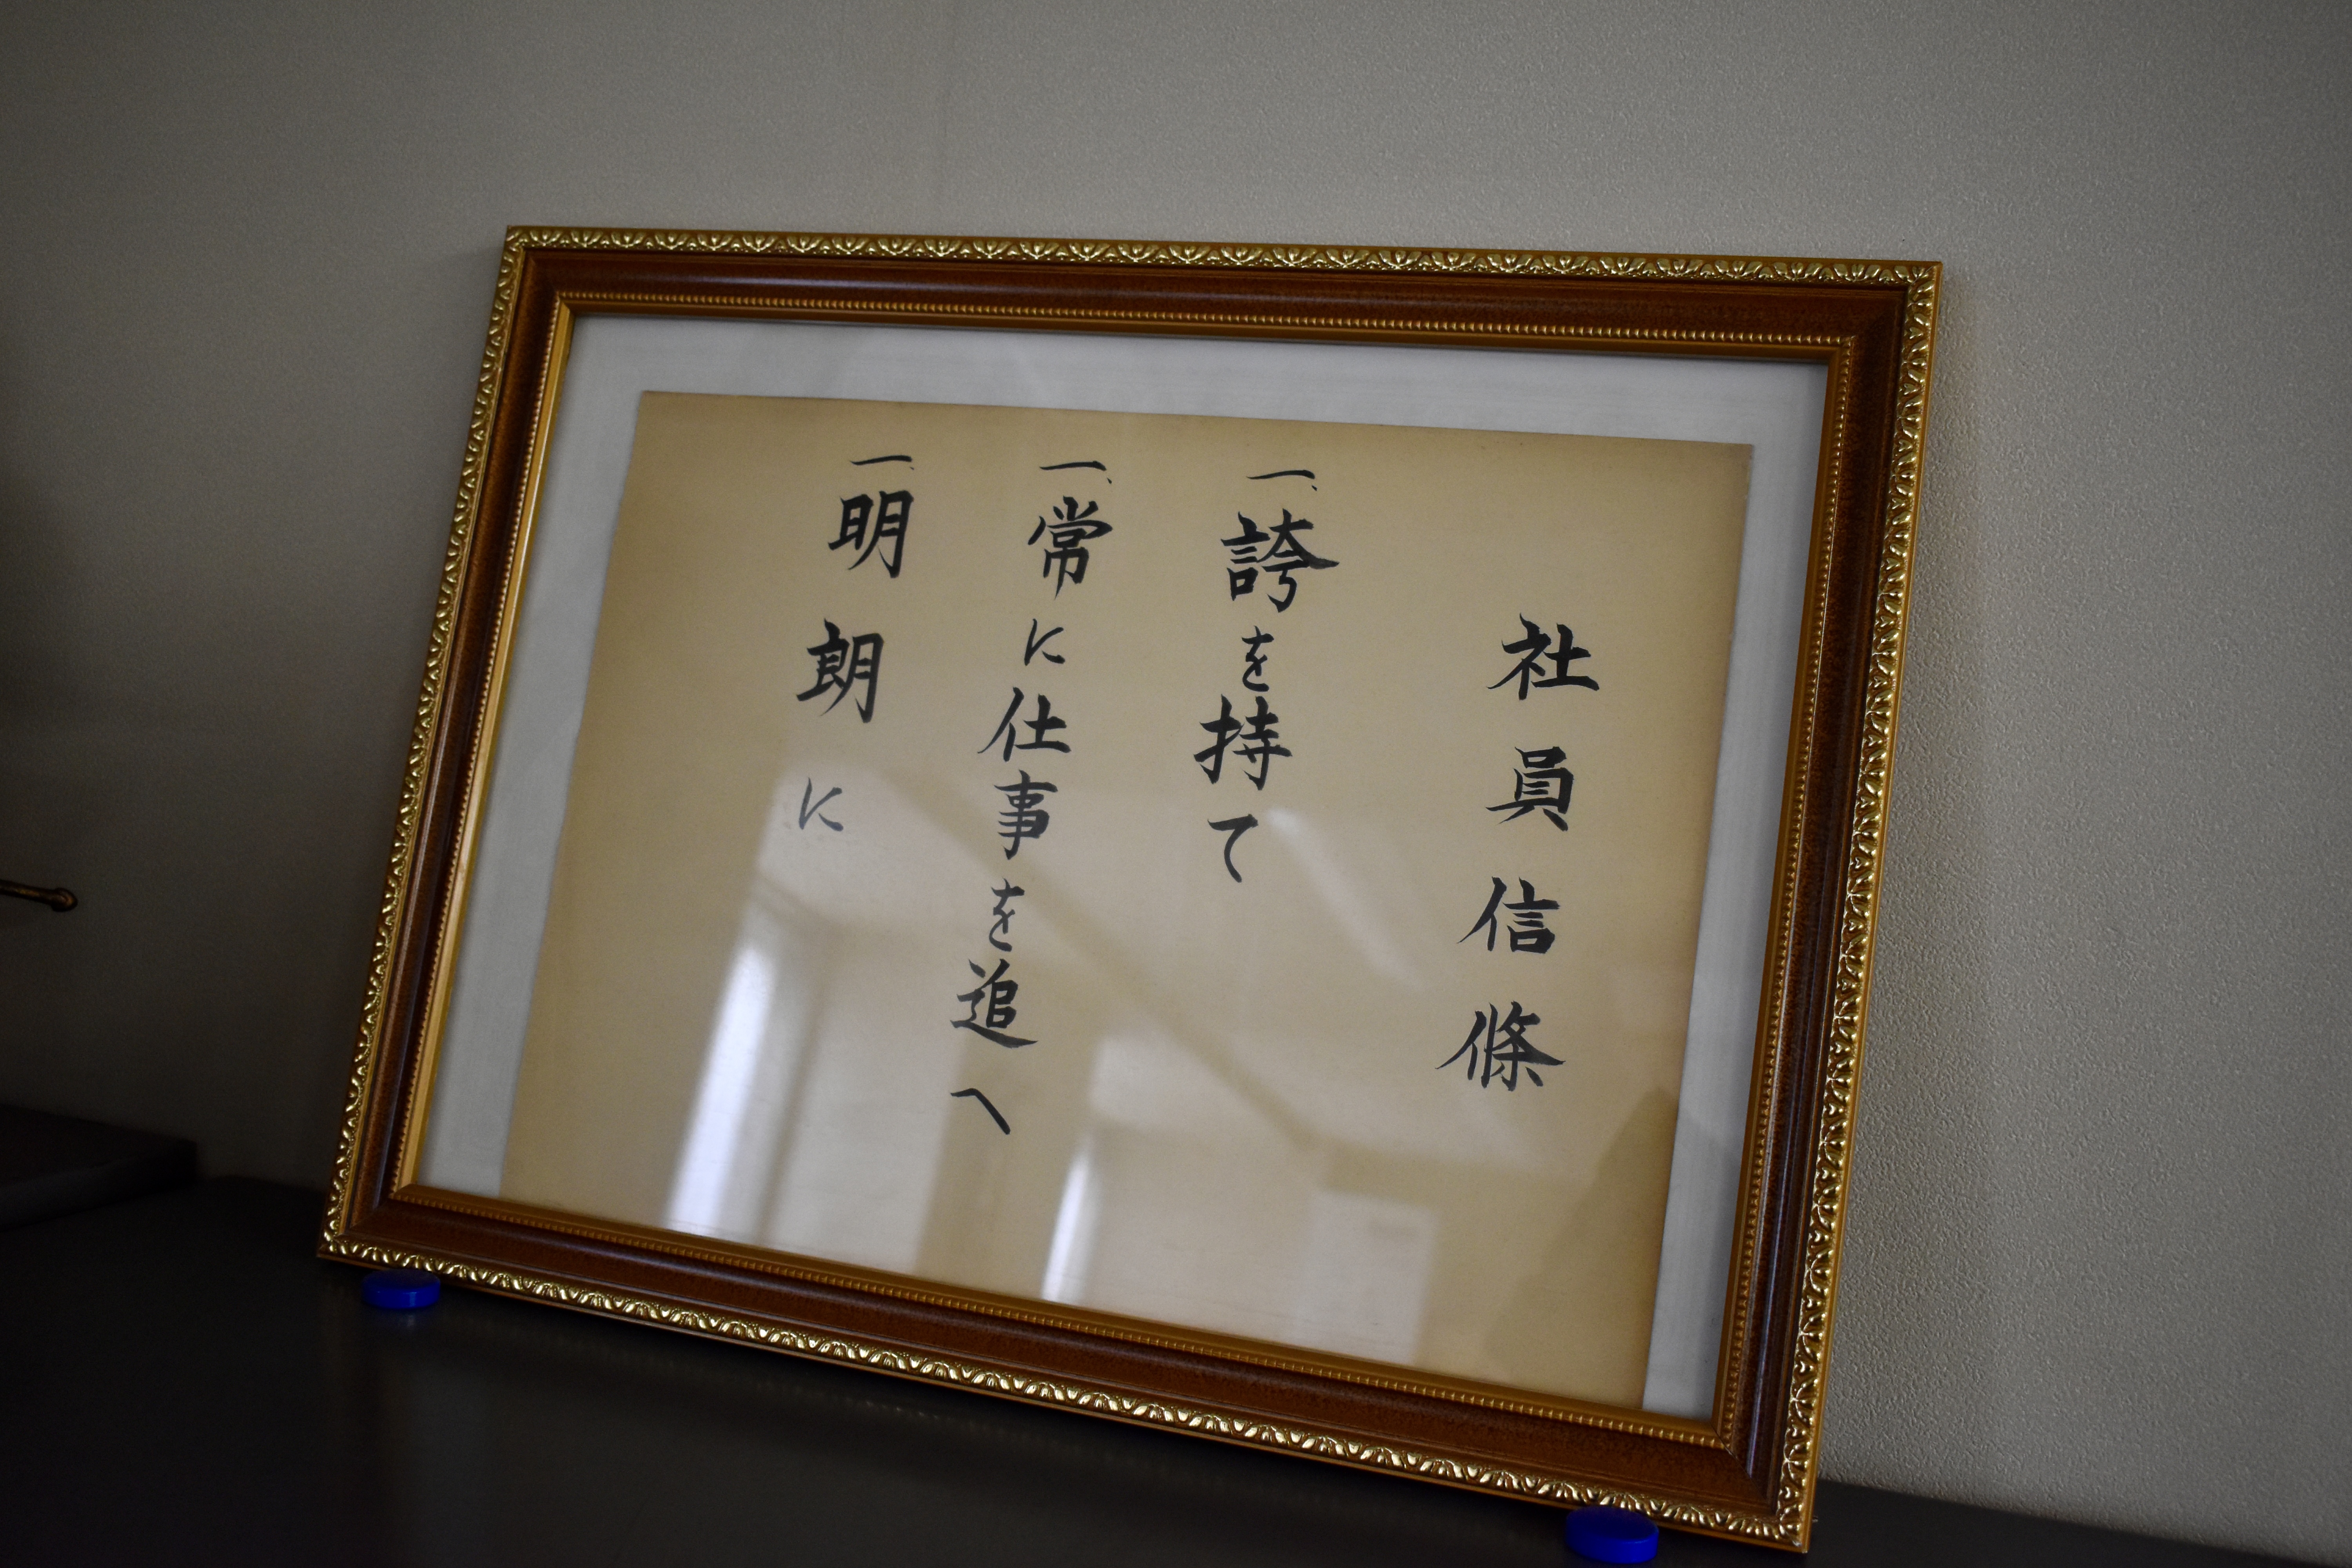 社員信條
一、誇を持て
一、常に仕事を追へ
一、明朗に